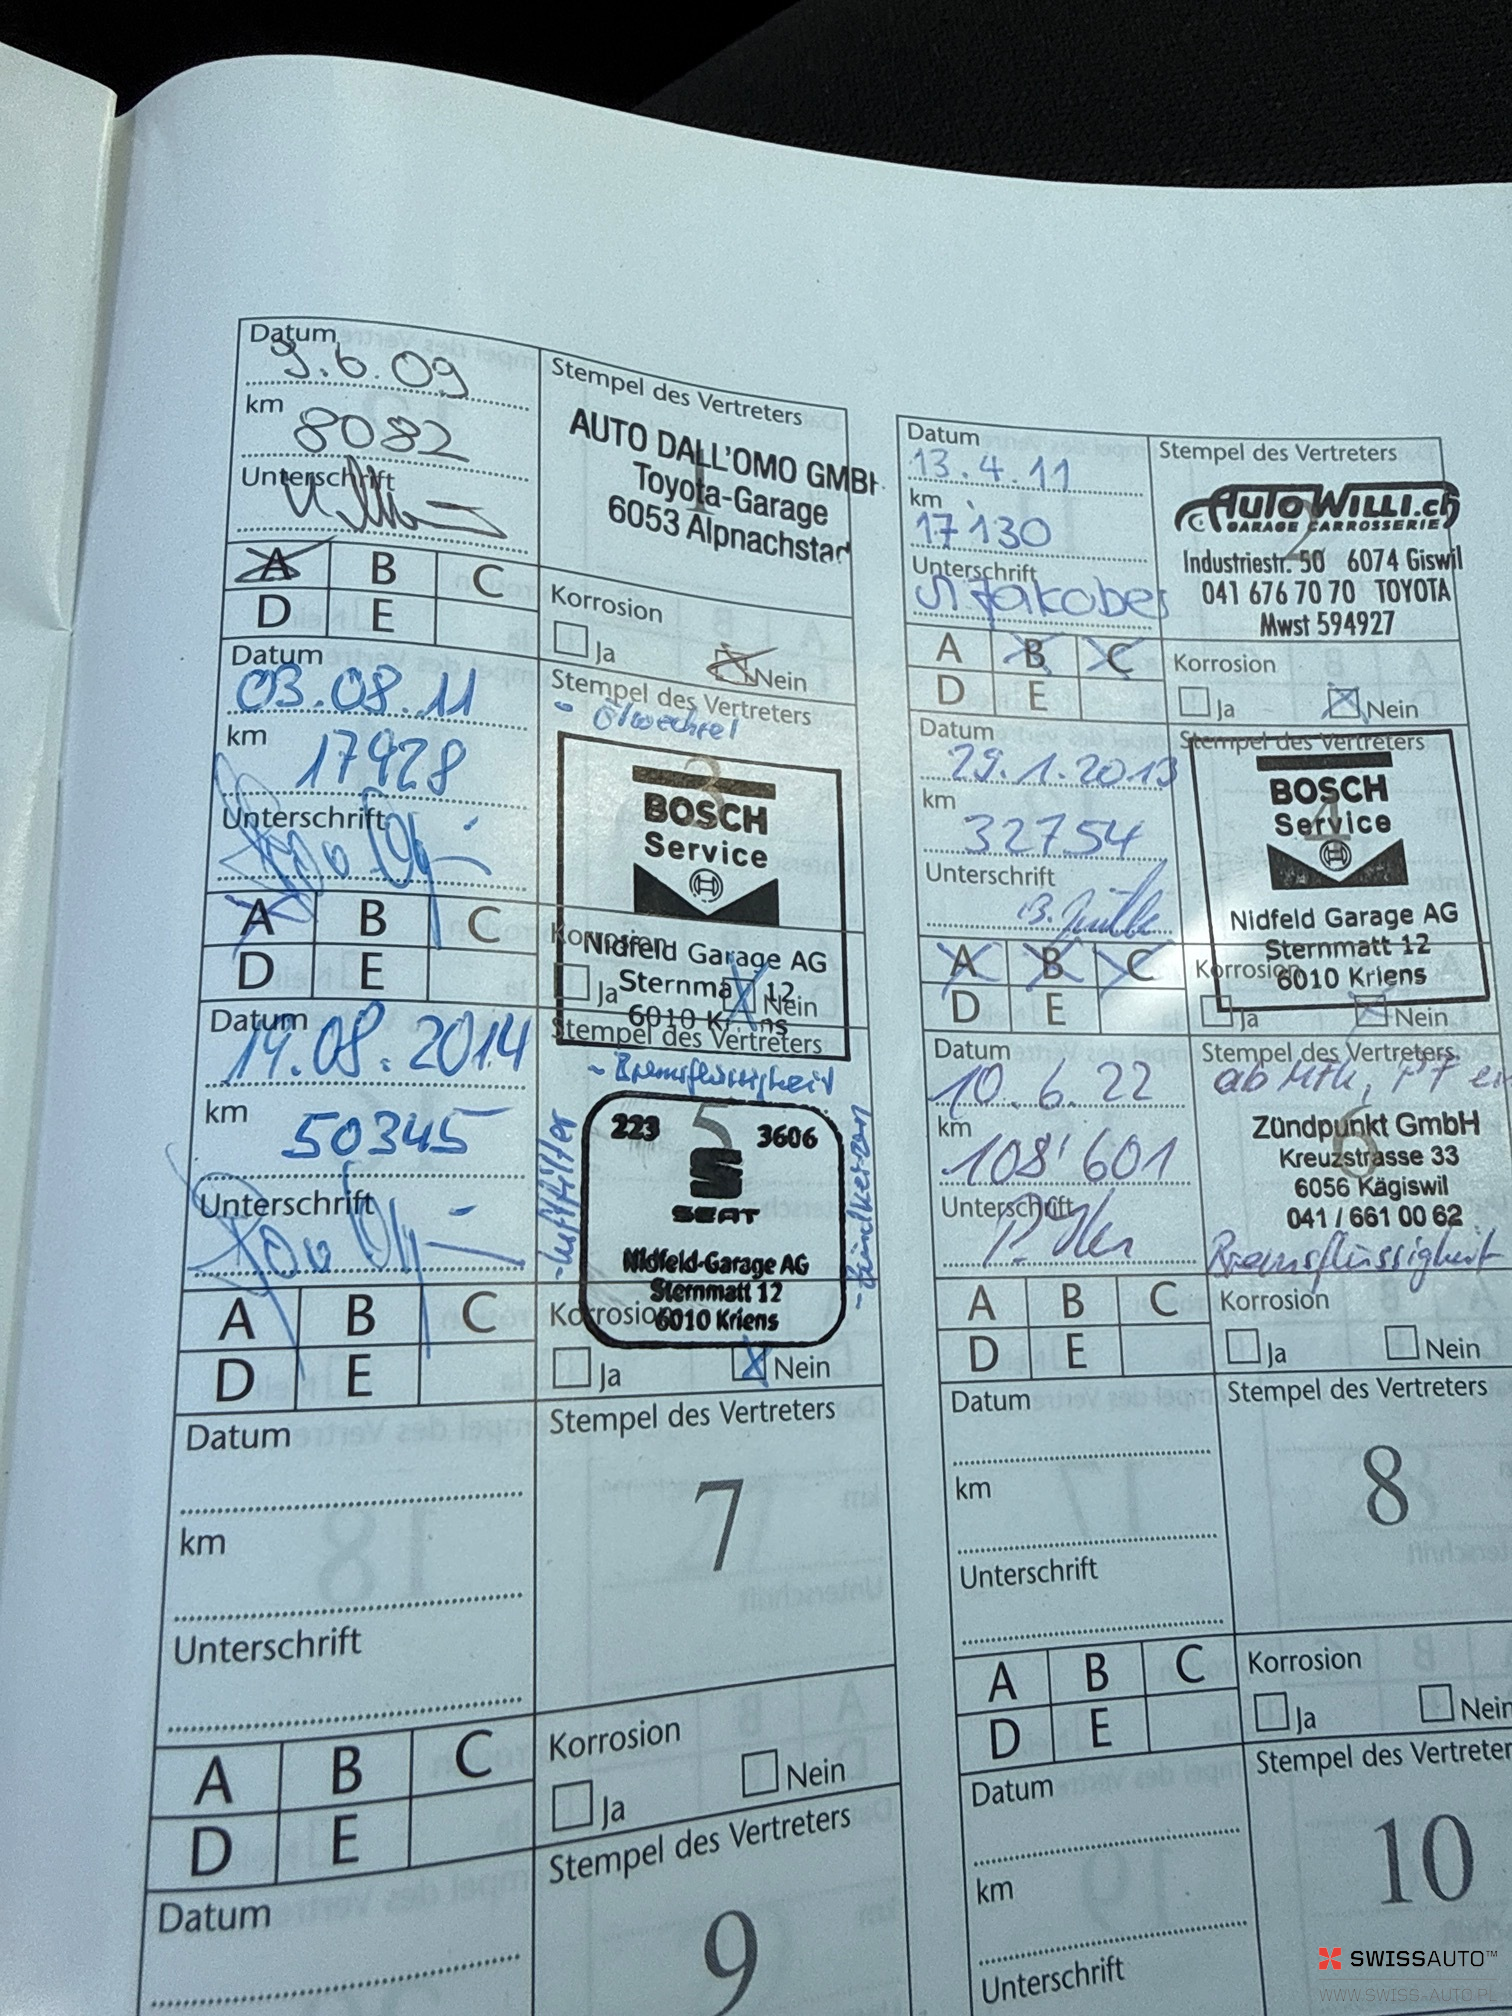 Datum
9.6.09
km
8082
Unterschrift
A B C
D E
Stempel des Vertreters
1
AUTO DALL'OMO GMBH
Toyota-Garage
6053 Alpnachstad
Korrosion
Ja Nein
Datum
13.4.11
km
17130
Unterschrift
A B C
D E
Stempel des Vertreters
2
AUTO WILLI.ch
GARAGE CARROSSERIE
Industriestr. 50 6074 Giswil
041 676 70 70 TOYOTA
Mwst 594927
Korrosion
Ja Nein
Datum
03.08.11
km
17928
Unterschrift
A B C
D E
Stempel des Vertreters
- Ölwechsel
3
BOSCH
Service
Nidfeld Garage AG
Sternmatt 12
6010 Kriens
Korrosion
Ja Nein
Datum
29.1.2013
km
32754
Unterschrift
A B C
D E
Stempel des Vertreters
4
BOSCH
Service
Nidfeld Garage AG
Sternmatt 12
6010 Kriens
Korrosion
Ja Nein
Datum
19.08.2014
km
50345
Unterschrift
A B C
D E
Stempel des Vertreters
- Bremsflüssigkeit
- Luftfilter
- Zündkerzen
5
223 3606
SEAT
Nidfeld-Garage AG
Sternmatt 12
6010 Kriens
Korrosion
Ja Nein
Datum
10.6.22
km
108'601
Unterschrift
A B C
D E
Stempel des Vertreters
6
Zündpunkt GmbH
Kreuzstrasse 33
6056 Kägiswil
041 / 661 00 62
Bremsflüssigkeit
Korrosion
Ja Nein
Datum
km
Unterschrift
A B C
D E
Stempel des Vertreters
7
Korrosion
Ja Nein
Datum
km
Unterschrift
A B C
D E
Stempel des Vertreters
8
Korrosion
Ja Nein
Datum
Stempel des Vertreters
9
Datum
km
Unterschrift
Stempel des Vertreter
10
SWISSAUTO™
WWW.SWISS-AUTO.PL